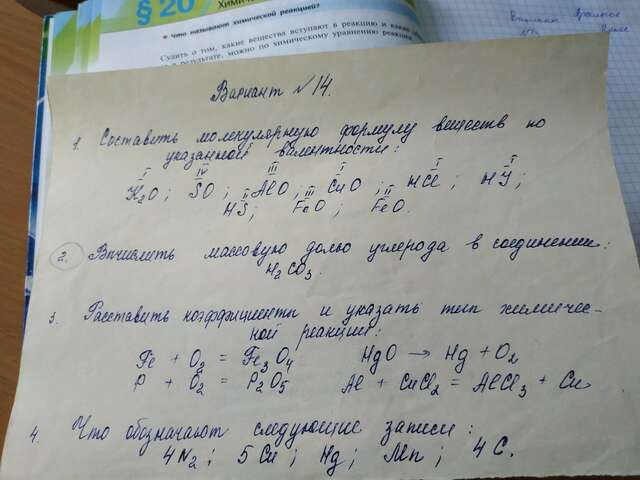 § 20
что называют химической реакцией?
Судить о том, какие вещества вступают в реакцию и какие
в результате, можно по химическому уравнению реакции
Вариант №14.
1. Составить молекулярную формулу веществ по
указанной валентности:
I IV III I I I
H₂O; SO; AlO; CuO; HCl; HJ;
II III II
HS; FeO; FeO.
2. Вычислить массовую долю углерода в соединении:
H₂CO₃.
3. Расставить коэффициенты и указать тип химичес-
ной реакции:
Fe + O₂ = Fe₃O₄ HgO → Hg + O₂
P + O₂ = P₂O₅ Al + CuCl₂ = AlCl₃ + Cu
4. Что обозначают следующие записи:
4N₂; 5Cu; Hg; Mn; 4C.